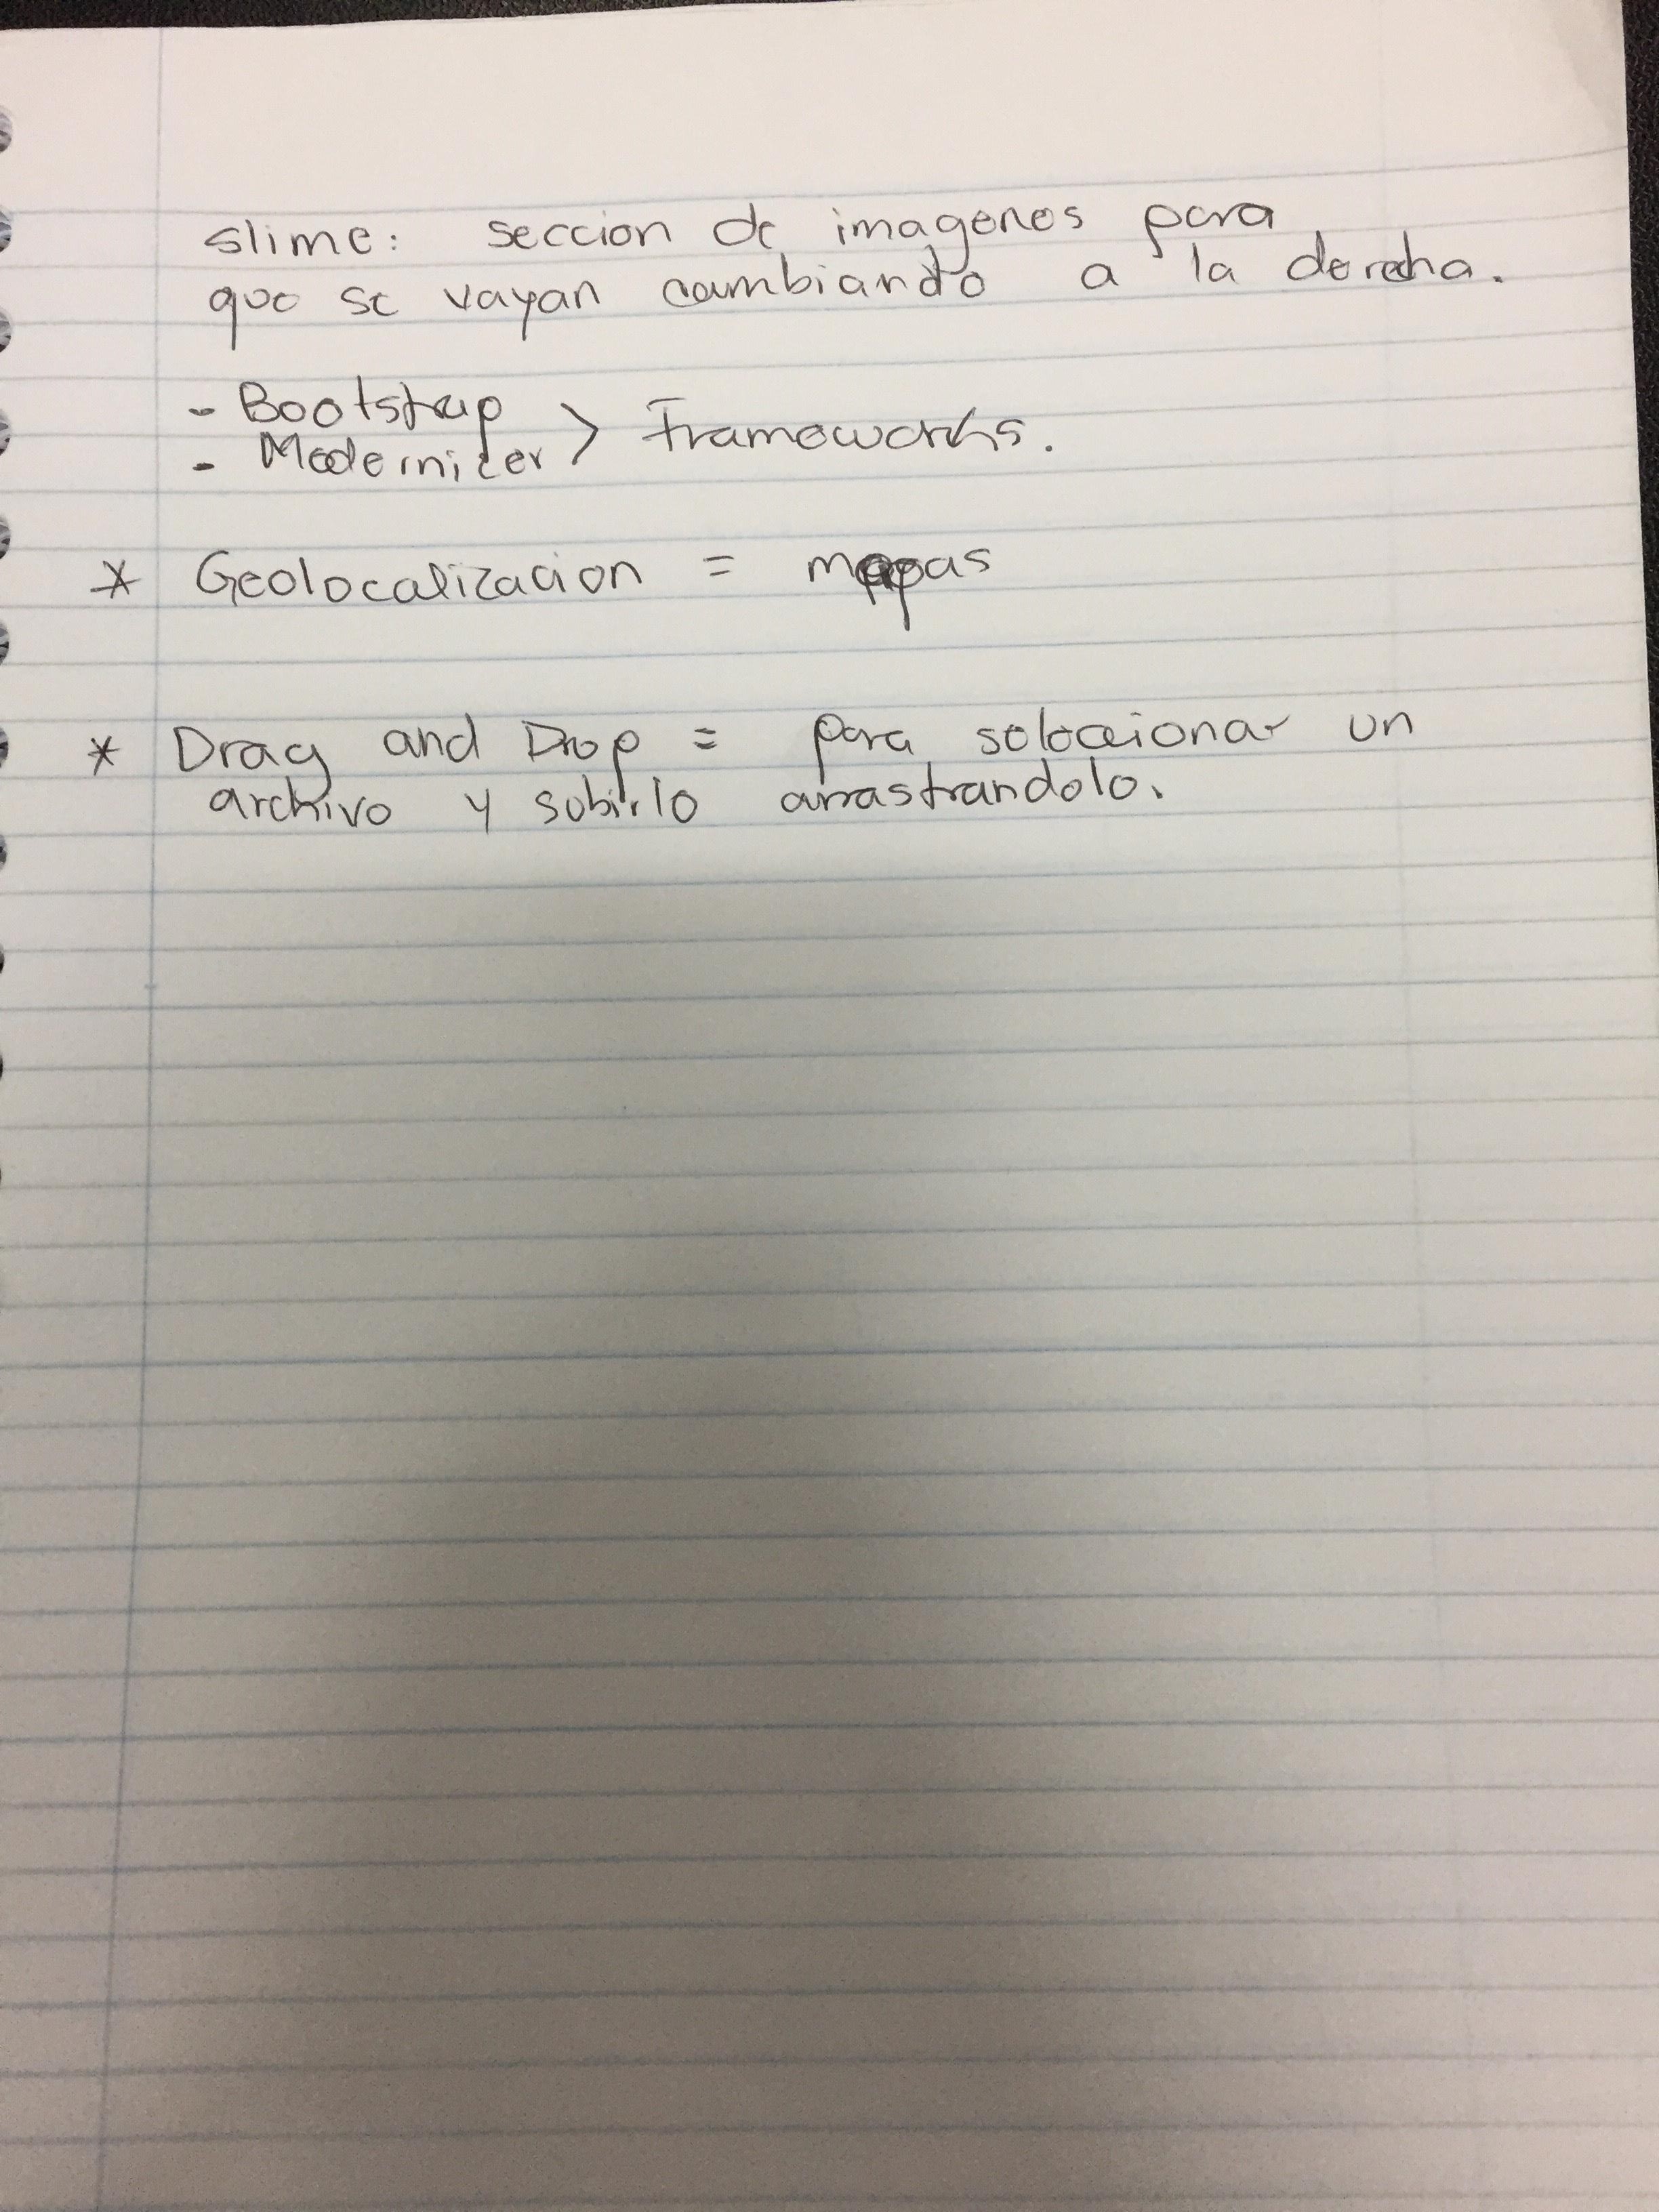 slime: seccion de imagenes para
que se vayan cambiando a la derecha.
- Bootstrap
- Modernizer > Frameworks.
* Geolocalizacion = mapas
* Drag and Drop = para seleccionar un
archivo y subirlo arrastrandolo.